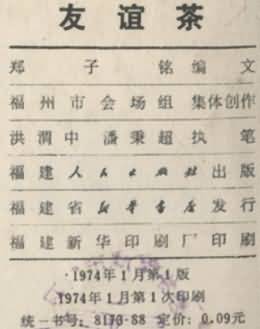 友谊茶
郑子铭编文
福州市会场组集体创作
洪渭中 潘秉超执笔
福建人民出版社出版
福建省新华书店发行
福建新华印刷厂印刷
·1974年1月第1版
1974年1月第1次印刷
统一书号：8173·88 定价：0.09元